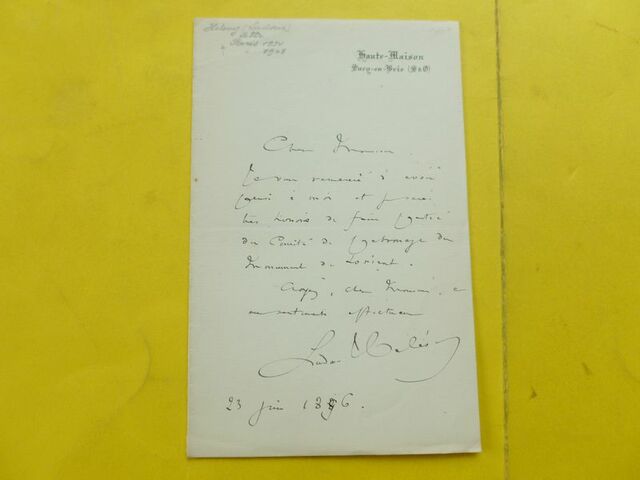 Halévy (Ludovic)
Paris 1834
1908
Haute-Maison
Sucy-en-Brie (S&O)
Cher Monsieur
Je vous remercie d'avoir
pensé à moi et serai
très honoré de faire partie
du Comité de patronage du
Monument de Lorient.
Croyez, cher Monsieur, à
mes sentiments affectueux
Ludovic Halévy
23 juin 1896.